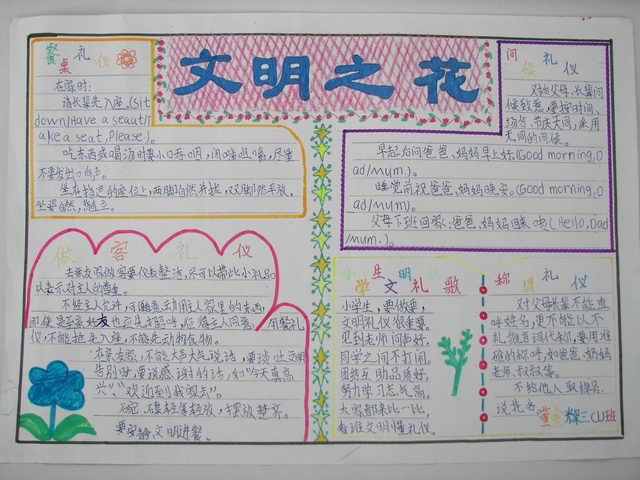 文明之花
餐桌礼仪
在家时:
请长辈先入座。(Sit
down/Have a seat/
ake a seat, Please)。
吃东西或喝汤时要小口吞咽，闭嘴咀嚼，尽量
不要发出响声。
坐在挡远的座位上，两脚自然并拢，双脚自然平放，
坐姿自然，端正。
问候礼仪
对于父母、长辈问
候致意，要按时间、
场合、节庆不同，采用
不同的问候。
早起后问爸爸、妈妈早上好。(Good morning,D
ad/Mum.)。
睡觉前祝爸爸、妈妈晚安。(Good morning,D
ad/Mum.)。
父母下班回家:爸爸、妈妈回来啦(Hello,Dad
/Mum.)。
做客礼仪
去亲友家做客要仪表整洁，尽可以带些小礼品
以表示对主人的尊重。
不经主人允许，不可随意去翻
即使是至亲好友也应先打招呼，征得主人同意
仪，不能抢先入座，不能先动食物。
在亲友家，不能大声大气说话，要谈吐文明
告别时，要说感谢的话，如“今天真高
兴”“欢迎到我家去”。
碗、碟轻拿轻放，摆放整齐。
要安静、文明进餐
小学生文明礼仪歌
小学生，要做要，
文明礼仪很重要，
见到老师问声好，
同学之间不打闹。
团结互助品质好，
努力学习志气高。
大家都来比一比，
看谁文明懂礼仪。
称谓礼仪
对父母长辈不能直
呼姓名，更不能以不
礼貌言词代称，要用准
确的称呼，如爸爸、奶奶
老师、叔叔等。
不给他人取绰号、
说花名。
三(1)班